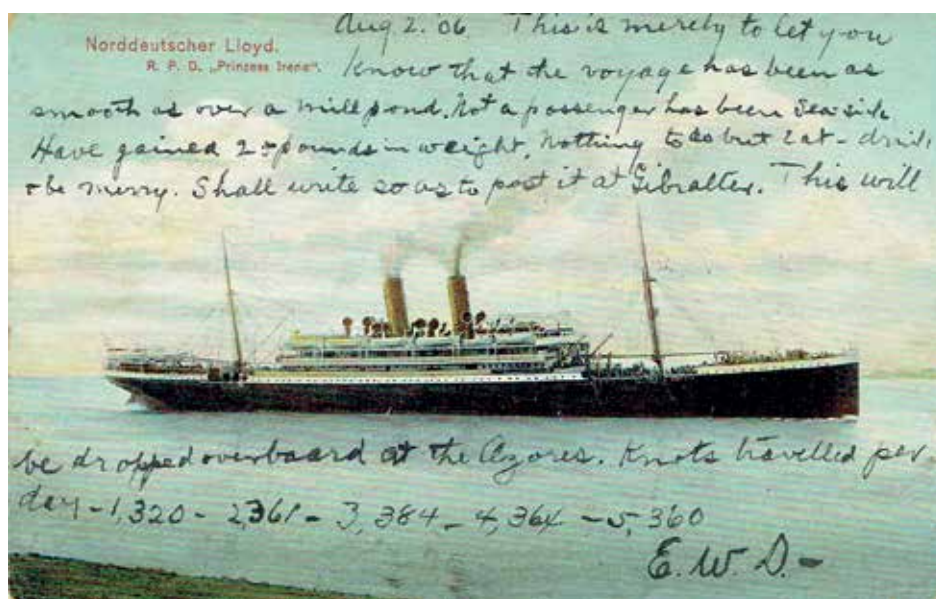 Norddeutscher Lloyd.
R. P. D. „Prinzess Irene“.
Aug 2. '06 This is merely to let you
Know that the voyage has been as
smooth as over a mill pond. Not a passenger has been Sea sick
Have gained 2 pounds in weight. Nothing to do but Eat - drink,
& be merry. Shall write so as to post it at Gibralter. This will
be dropped overboard at the Azores. Knots travelled per
day - 1,320 - 2,361 - 3,384 - 4,364 - 5,360
E. W. D. -